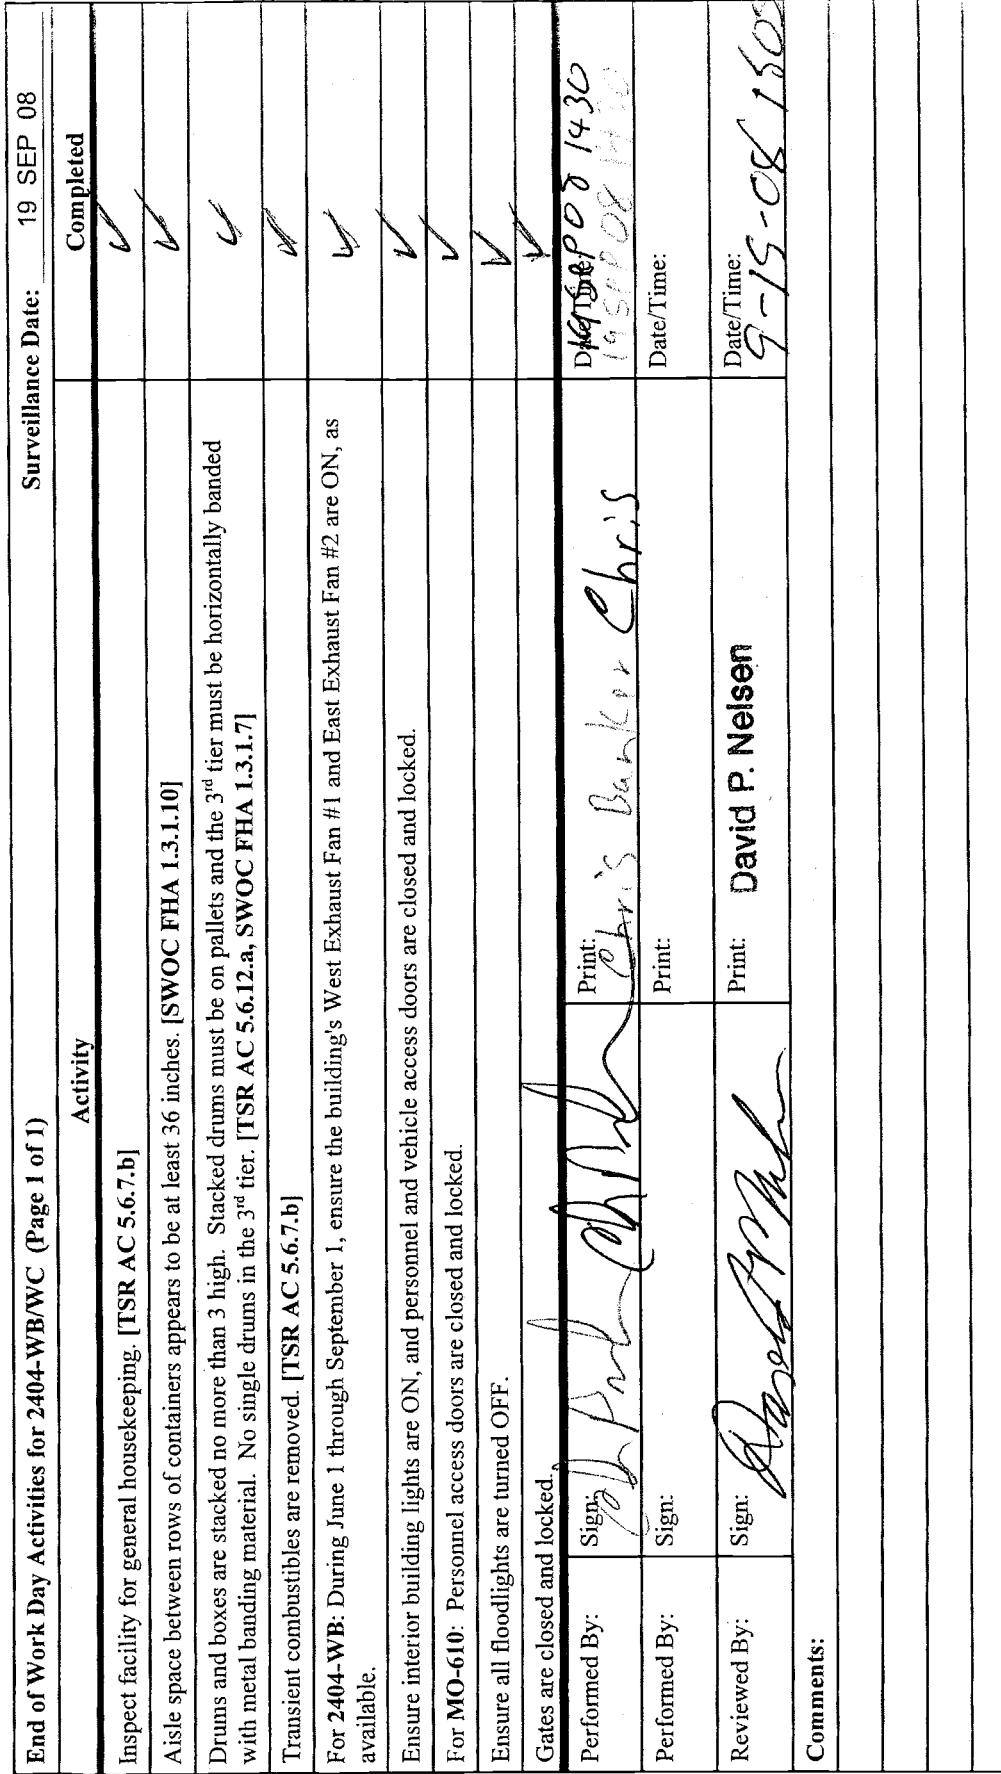 End of Work Day Activities for 2404-WB/WC (Page 1 of 1) Surveillance Date: 19 SEP 08
Activity Completed
Inspect facility for general housekeeping. [TSR AC 5.6.7.b] ✓
Aisle space between rows of containers appears to be at least 36 inches. [SWOC FHA 1.3.1.10] ✓
Drums and boxes are stacked no more than 3 high. Stacked drums must be on pallets and the 3rd tier must be horizontally banded
with metal banding material. No single drums in the 3rd tier. [TSR AC 5.6.12.a, SWOC FHA 1.3.1.7] ✓
Transient combustibles are removed. [TSR AC 5.6.7.b] ✓
For 2404-WB: During June 1 through September 1, ensure the building's West Exhaust Fan #1 and East Exhaust Fan #2 are ON, as
available. ✓
Ensure interior building lights are ON, and personnel and vehicle access doors are closed and locked. ✓
For MO-610: Personnel access doors are closed and locked. ✓
Ensure all floodlights are turned OFF. ✓
Gates are closed and locked. ✓
Performed By: Sign: Print: Chris Chris Date/Time: 19 SEP 08 1430
19 SEP 08 1430
Performed By: Sign: Print: Date/Time:
Reviewed By: Sign: Print: David P. Nelsen Date/Time:
Comments: